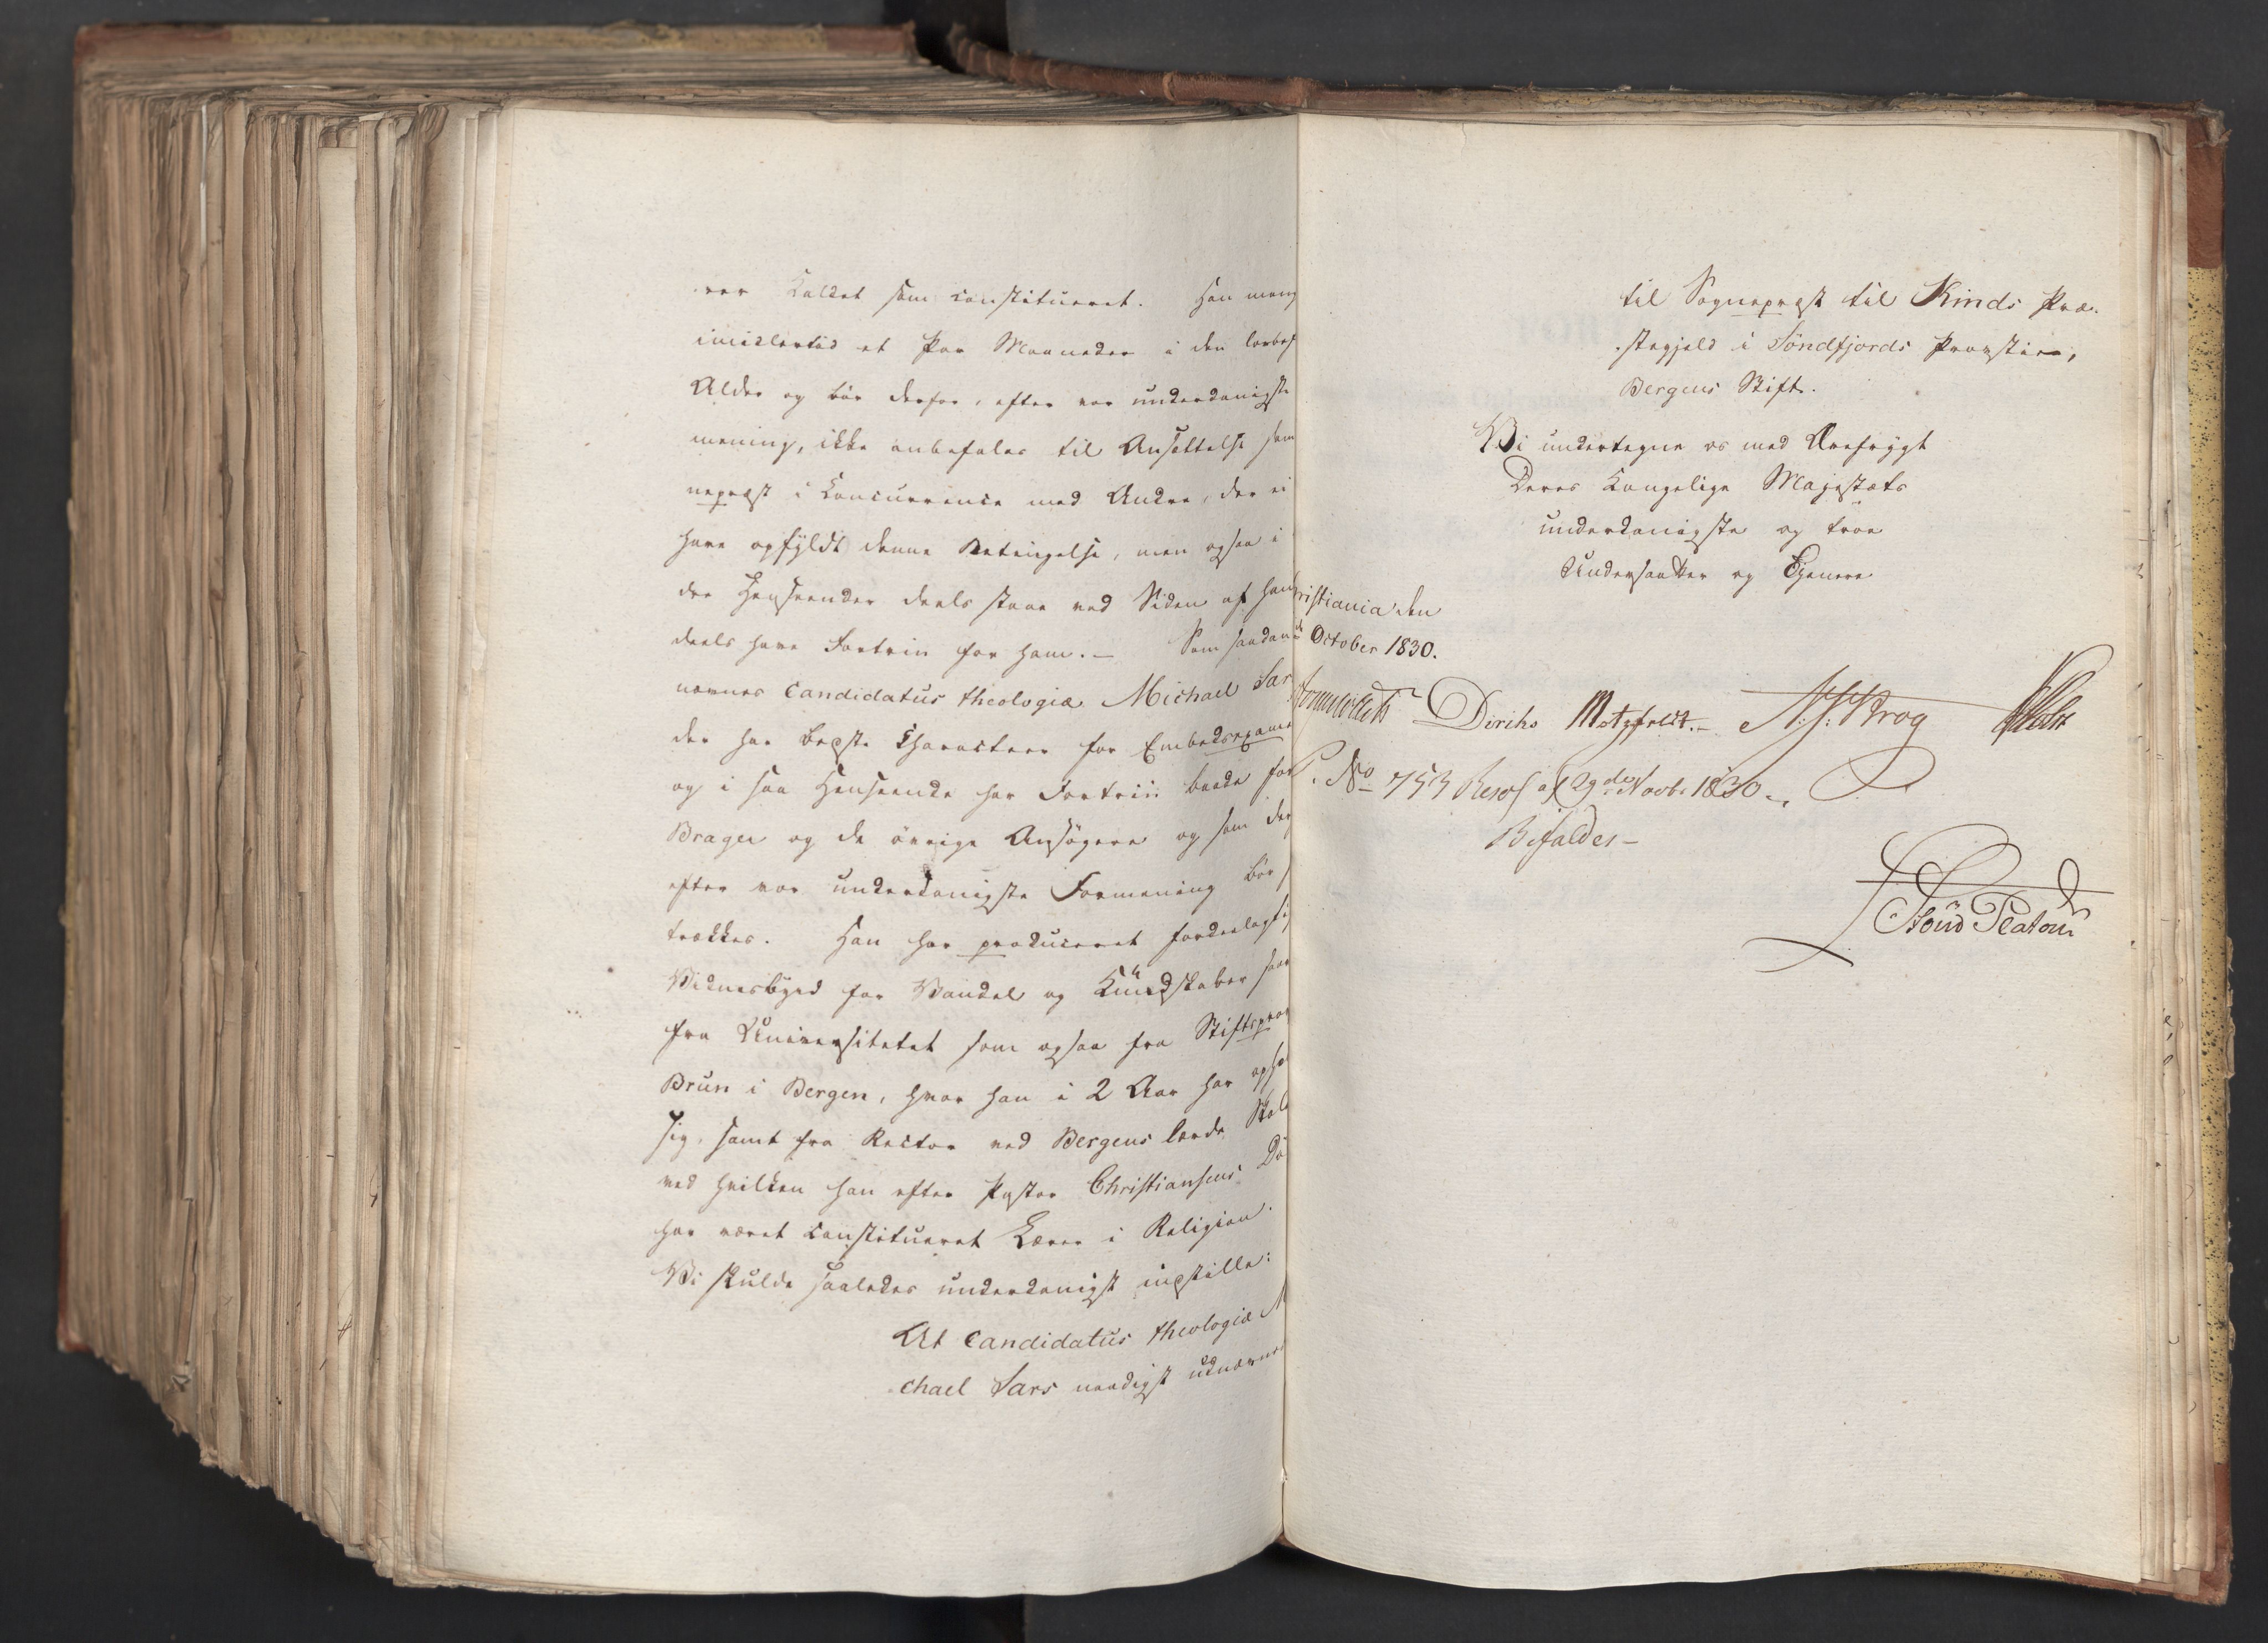 ver Kaldet som constitueret. Han mang
imidlertid et Par Maaneder i den lovbes
Alder og bør derfor, efter vor underdanigste
mening, ikke anbefales til Ansættelse som
nepræst i Concurrence med Andre, der ei
have opfyldt denne Betingelse, men ogsaa i
dre Henseender deels staae ved Siden af ham
deels have Fortrin for ham. — Som saadan
nævnes Candidatus theologiæ Michael Sar
der har bedste Characteer for Embedsexame
og i saa Henseende har Fortrin baade for
Brager og de øvrige Ansøgere og som der
efter vor underdanigste Formening bør
trækkes. Han har produceret fordeelagti
Vidnesbyrd for Vandel og Kundskaber saa
fra Universitetet som ogsaa fra Stiftsprov
Brun i Bergen, hvor han i 2 Aar har opho
sig, samt fra Rector ved Bergens lærde Skol
ved hvilken han efter Pastor Christiansens Dø
har været constitueret Lærer i Religion.
Vi skulde saaledes underdanigst indstille:
At Candidatus theologiæ M
chael Sars naadigst udnævnes
til Sognepræst til Kinds Præ-
stegjeld i Søndfjords Provstie,
Bergens Stift.
Vi undertegne os med Ærefrygt
Deres Kongelige Majestæts
underdanigste og troe
Undersaatter og Tjenere
ristiania den
October 1830.
Diriks Motzfeldt. N. J. Krog
No 753 Resol af 29de Novbr 1830
Bifaldes—
Foug Platou